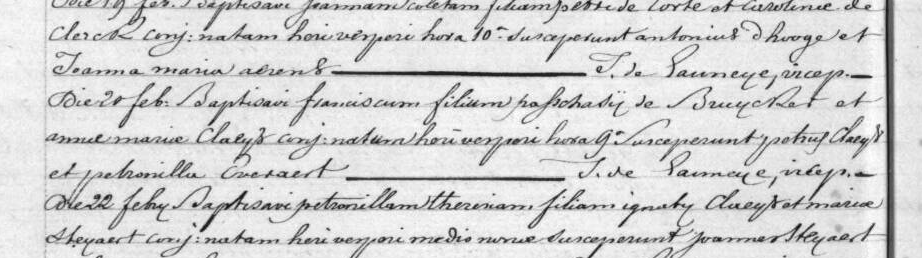 Die 19 feb. Baptisavi joannam coletam filiam petri de Corte et Carolinæ de
Clerck conj: natam heri vesperi hora 10ª susceperunt antonius d'hooge et
Joanna maria aerens J. de Pauneye, vicep.
Die 20 feb: Baptisavi franciscum filium passchasij de Bruycker et
annæ mariæ Claeys conj: natum heri vesperi hora 9ª Susceperunt petrus Claeys
et petronilla Everaert J. de Pauneye, vicep.
Die 22 febry Baptisavi petronillam theresiam filiam ignatij Claeys et mariæ
Steyaert conj: natam heri vesperi medio nonæ susceperunt joannes Steyaert